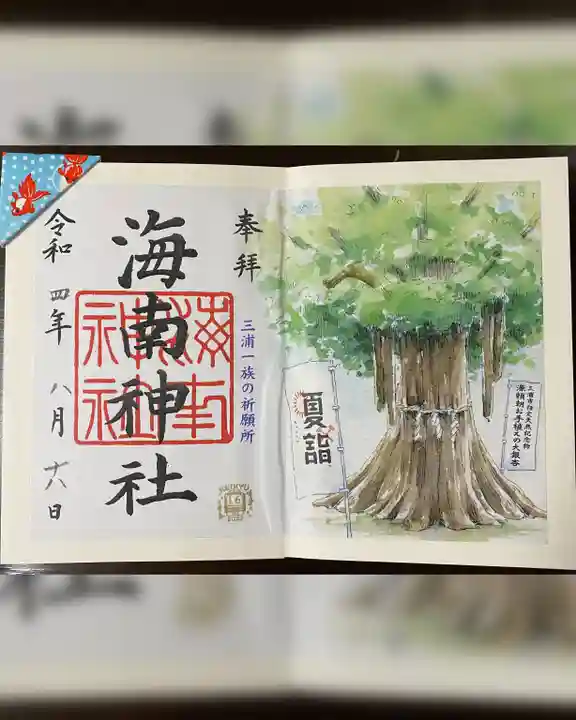 奉拝
三浦一族の祈願所
海南神社
海南神社
令和四年八月十六日
KEIKYU
16
夏詣
三浦市指定天然記念物
源頼朝お手植えの大銀杏